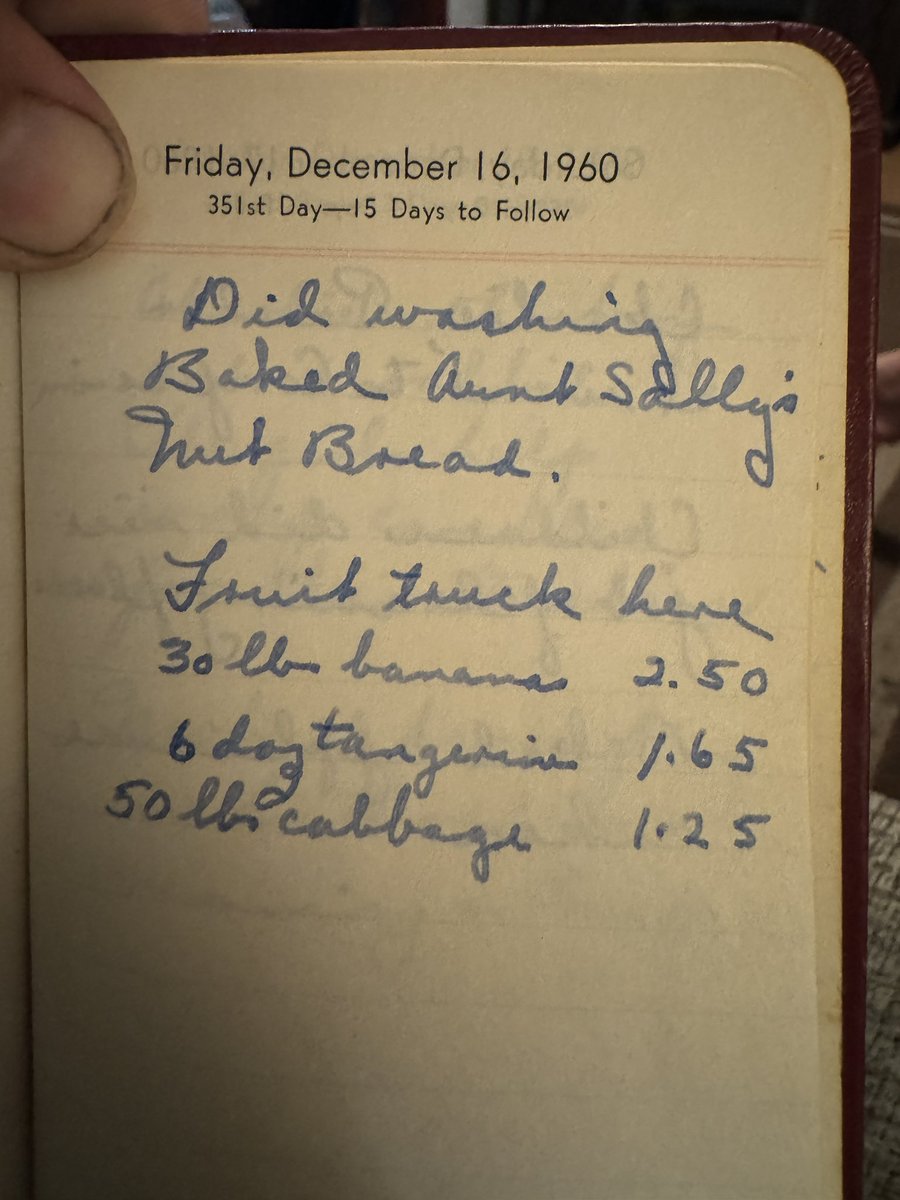 Friday, December 16, 1960
351st Day—15 Days to Follow
Did washing
Baked Aunt Sally's
Nut Bread.
Fruit truck here
30 lb bananas 2.50
6 doz tangerines 1.65
50 lbs cabbage 1.25